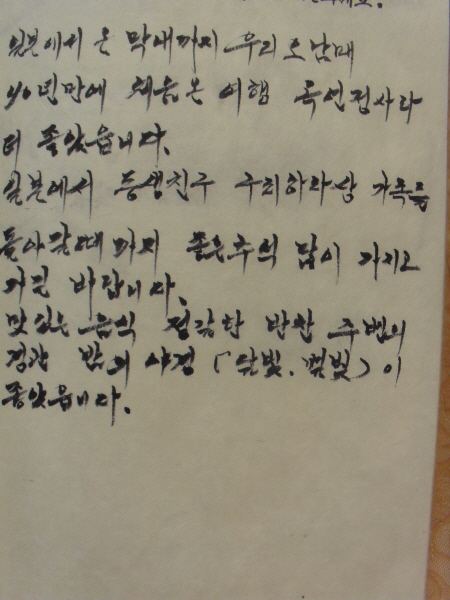 일본에서 온 막내까지 우리 오남매
40년만에 처음온 여행 록언집사라
더 좋았읍니다.
일본에서 동생친구 구리하라상 가족들
돌아갈때 까지 좋은추석 많이 가지고
가길 바랍니다.
맛있는 음식 정갈한 반찬 주변의
경관 밤의 야경 (달빛, 별빛)이
좋았읍니다.